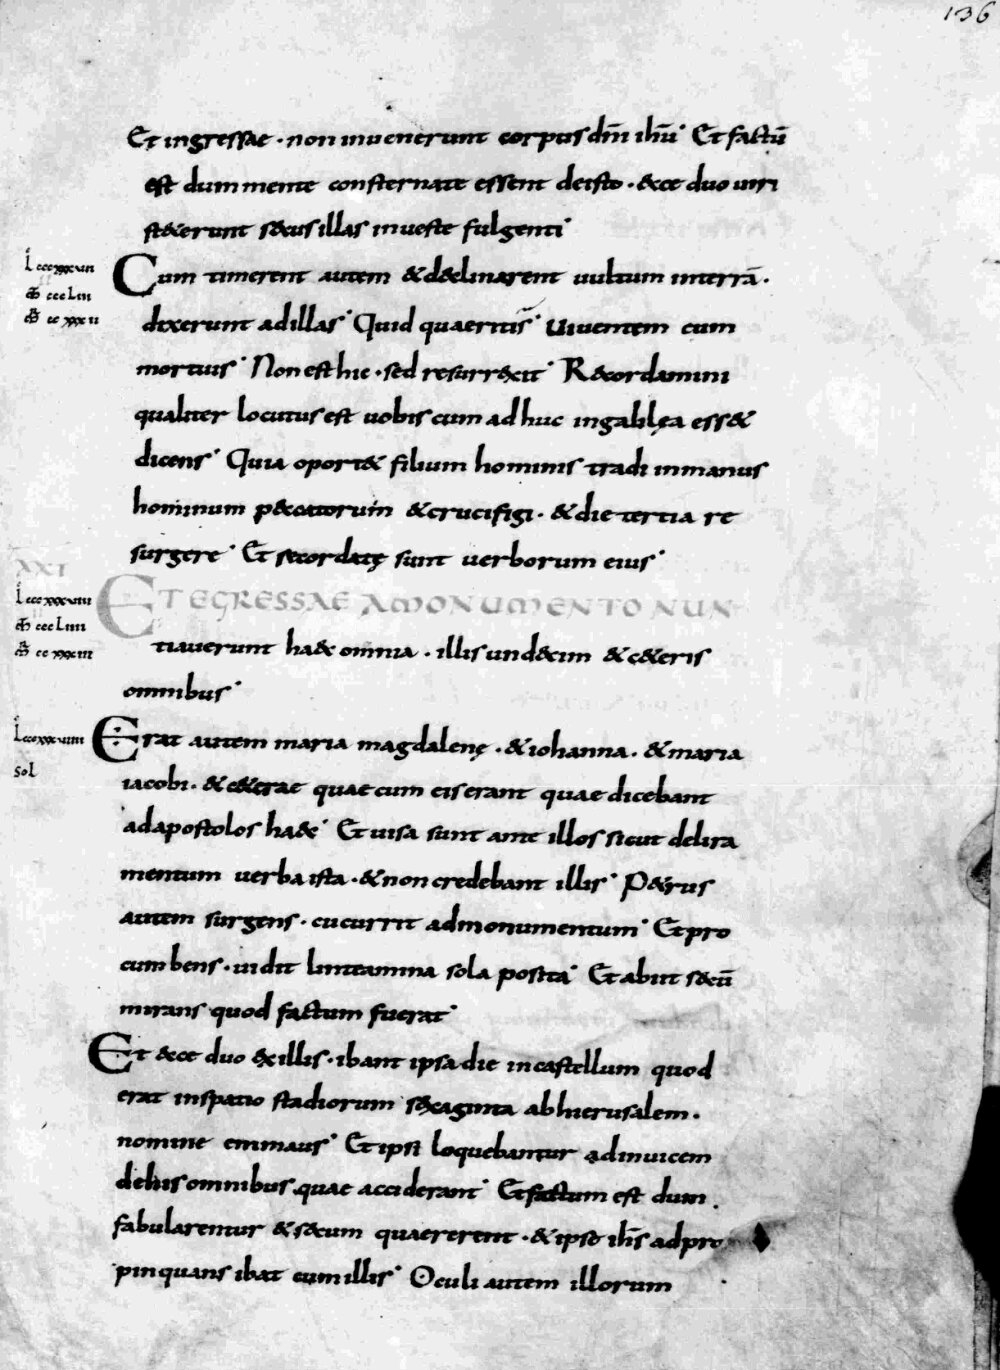 136
Et ingressae · non inuenerunt corpus dn̄i ih̄u · Et factū
est dum mente consternate essent deisto · &cce duo uiri
st&erunt s&cus illas inueste fulgenti ·
Lcccxxxvii
Cum timerent autem &d&clinarent uultum interrā ·
m̄ cccLiii
m̄ ccxxxii
dixerunt adillas · Quid quaeritis · Uiuentem cum
mortuis · Non est hic · sed resurr&xit · R&cordamini
qualiter locutus est uobis cum adhuc ingalilęa ess&
dicens · Quia oport& filium hominis tradi inmanus
hominum p&ccatorum &crucifigi · &die tertia re
surgere · Et recordatę sunt uerborum eius ·
XXI
Lcccxxxviii
ET EGRESSAE AMONUMENTO NUN
m̄ cccLiiii
m̄ ccxxxiii
tiauerunt ha&c omnia · illis und&cim &c&eris
omnibus ·
Lcccxxxviiii
sol
Erat autem maria magdalenę · &iohanna · &maria
iacobi · &c&erae quae cum eis erant quae dicebant
adapostolos ha&c · Et uisa sunt ante illos sicut delira
mentum uerba ista · &non credebant illis · P&rus
autem surgens · cucurrit admonumentum · Et pro
cumbens · uidit linteamina sola posita · Et abiit s&cū
mirans quod factum fuerat ·
Et &cce duo &xillis · ibant ipsa die incastellum quod
erat inspatio stadiorum s&xaginta abhierusalem ·
nomine emmaus · Et ipsi loquebantur adinuicem
dehis omnibus quae acciderant · Et factum est dum
fabularentur &s&cum quaererent · &ipse ih̄s adpro
pinquans ibat cum illis · Oculi autem illorum